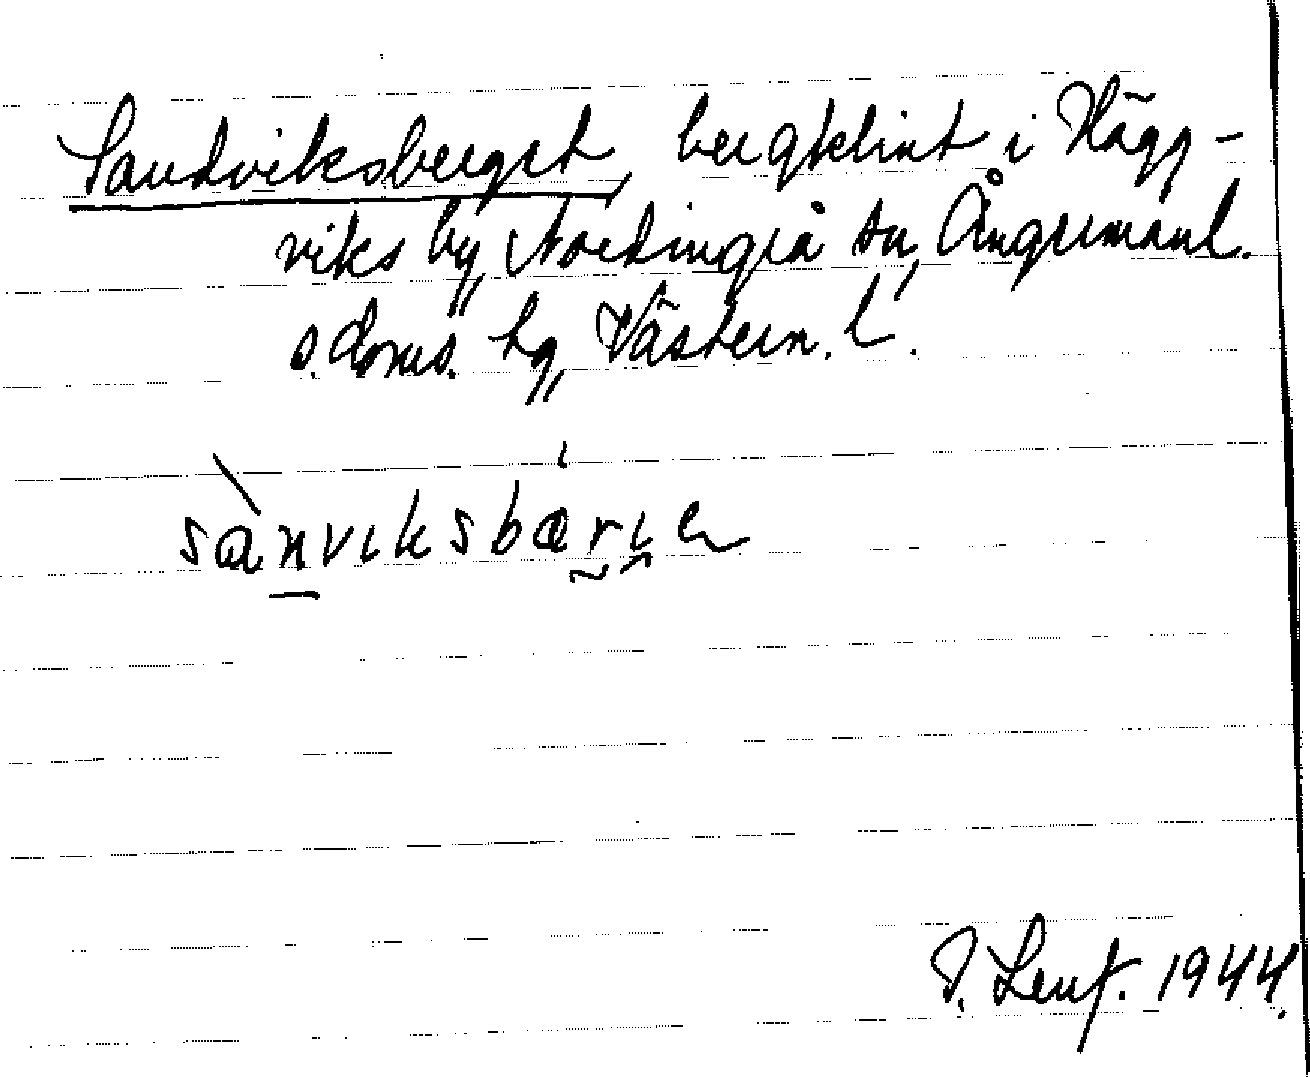 Sandviksberget, bergklint i Hägg-
viks by, Nordingrå sn, Ångermanl.
s. doms. tg, Västern. l.
sànviksbæri
1944.